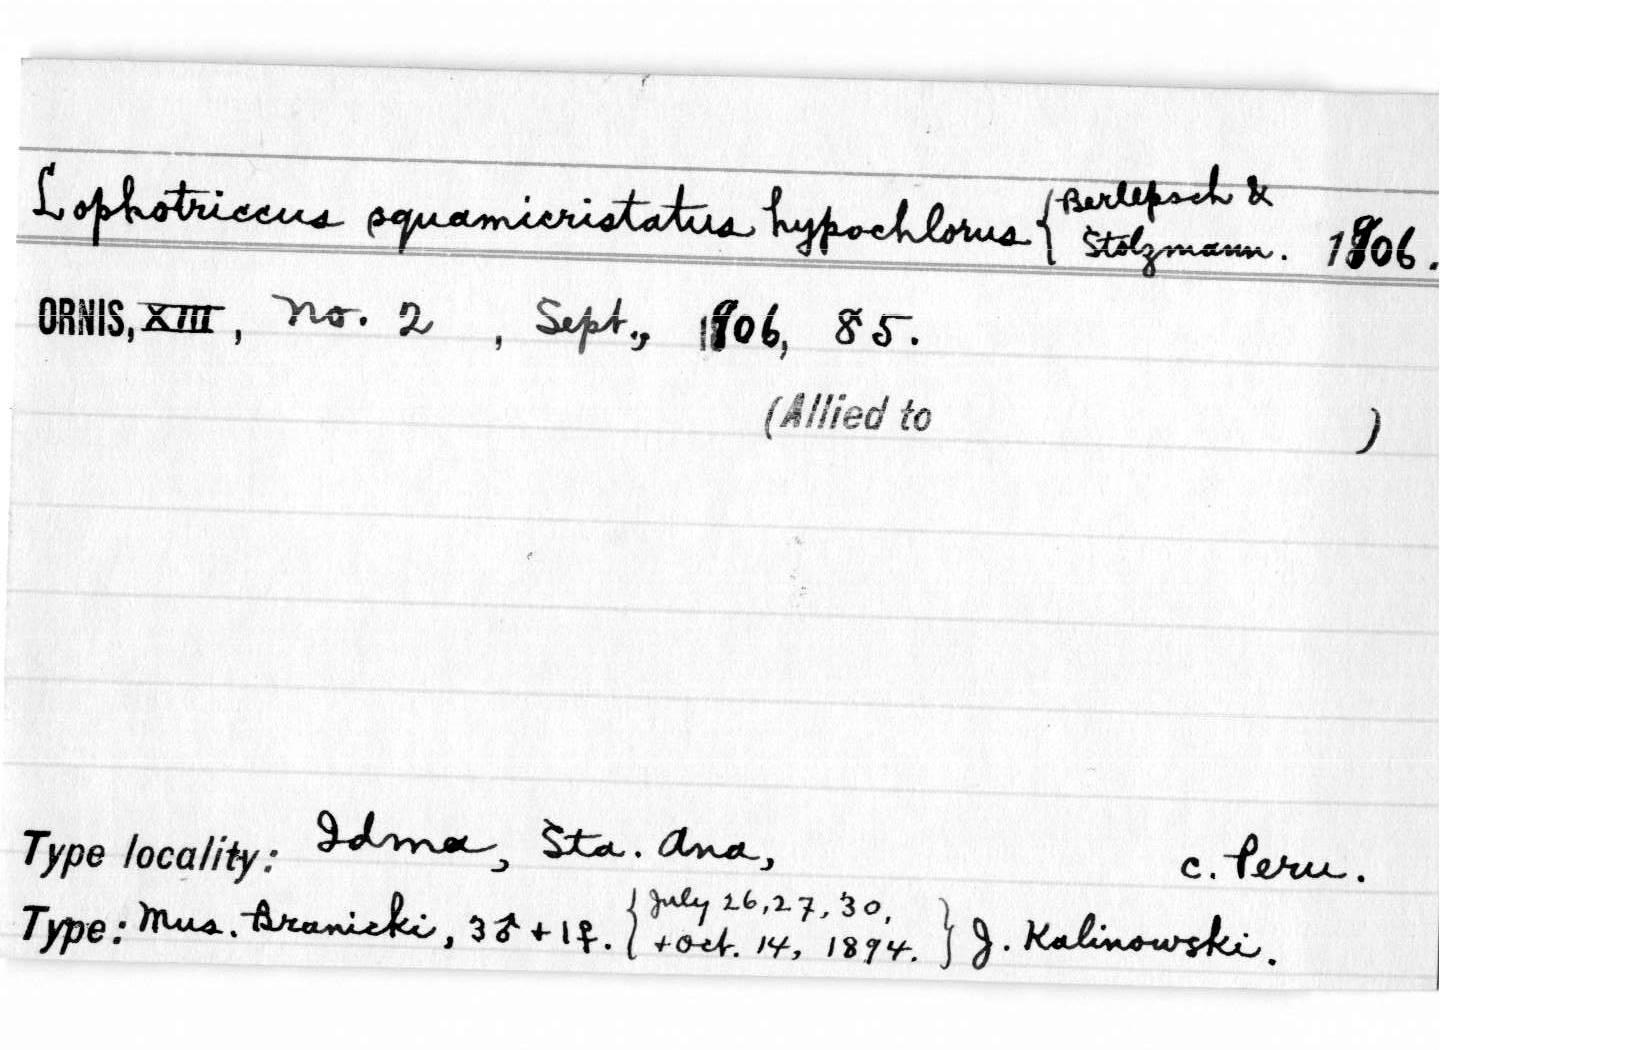 Lophotriccus squamicristatus hypochlorus { Berlepsch &
Stolzmann. 1906.
ORNIS, XIII, No. 2, Sept., 1906, 85.
(Allied to )
Type locality: Idma, Sta. Ana, C. Peru.
Type: Mus. Branicki, 3♂ + 1♀. { July 26, 27, 30,
+ Oct. 14, 1894. } J. Kalinowski.